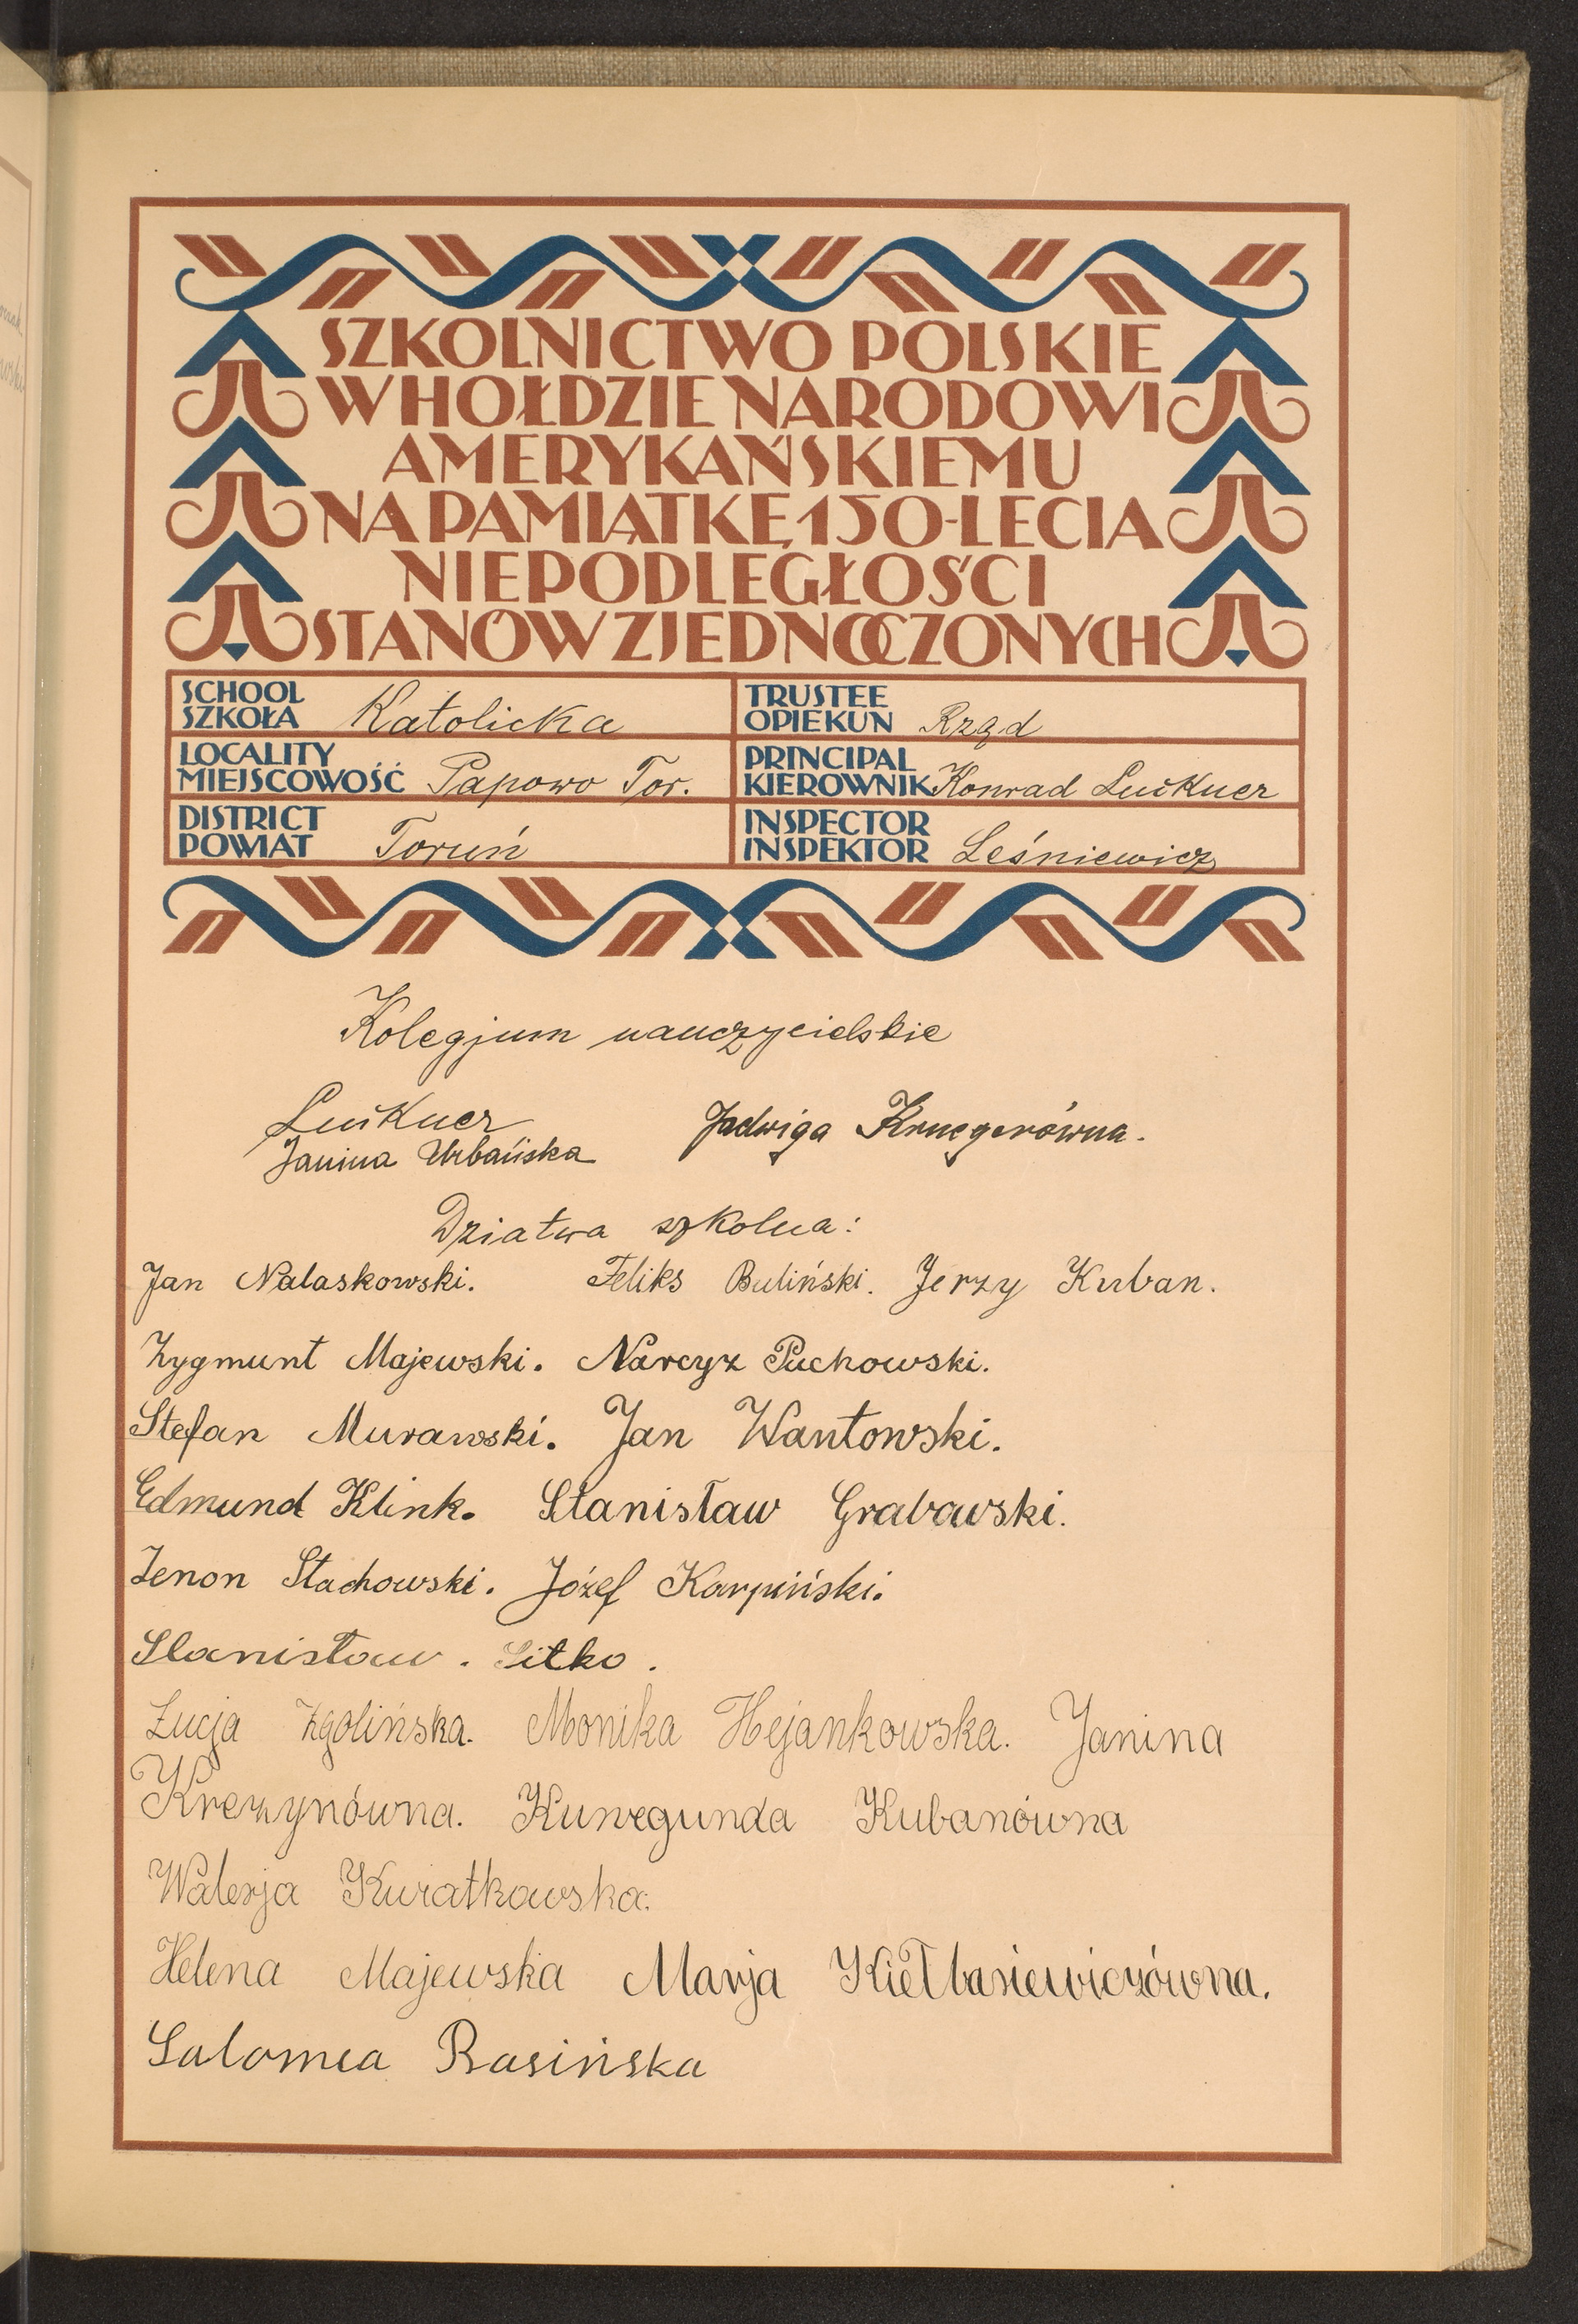 SZKOLNICTWO POLSKIE
W HOŁDZIE NARODOWI
AMERYKAŃSKIEMU
NA PAMIĄTKĘ 150-LECIA
NIEPODLEGŁOŚCI
STANÓW ZJEDNOCZONYCH
SCHOOL
SZKOŁA Katolicka
TRUSTEE
OPIEKUN Rząd
LOCALITY
MIEJSCOWOŚĆ Papowo Tor.
PRINCIPAL
KIEROWNIK Konrad Lučkner
DISTRICT
POWIAT Toruń
INSPECTOR
INSPEKTOR Leśniewicz
Kolegjum nauczycielskie
Lučkner
Jadwiga Kruegerówna.
Janina Urbańska
Dziatwa szkolna:
Jan Nalaskowski. Feliks Buliński. Jerzy Kuban.
Zygmunt Majewski. Narcyz Puchowski.
Stefan Murawski. Jan Wantowski.
Edmund Klink. Stanisław Grabowski.
Zenon Stachowski. Józef Karpiński.
Stanisław. Sitko.
Łucja Zgolińska. Monika Hejankowska. Janina
Krezynówna. Kunegunda Kubanówna
Walerja Kwiatkowska.
Helena Majewska Marja Kiełbasiewiczówna.
Salomea Rasińska